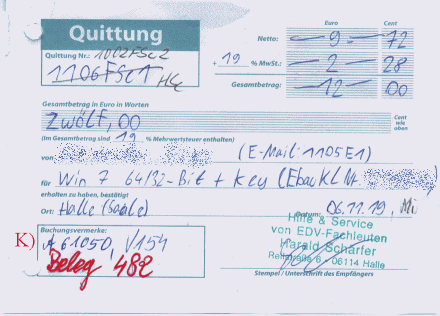 Quittung
Quittung Nr.: 1002FSC2
1106FSC1 HG
Euro Cent
Netto: 9 72
+ 19 % MwSt.: 2 28
Gesamtbetrag: 12 00
Gesamtbetrag in Euro in Worten
Zwölf, 00
Cent wie oben
(Im Gesamtbetrag sind 19 % Mehrwertsteuer enthalten)
von (E-Mail: 1105E1)
für Win 7 64/32-Bit + Key (Ebay KL Nr.
erhalten zu haben, bestätigt
Ort: Halle (Saale) Datum: 06.11.19, Mi
Buchungsvermerke:
K) A 61050, 1/154
Beleg 482
Hilfe & Service
von EDV-Fachleuten
Harald Schärfer
6 - 06114 Halle
Stempel / Unterschrift des Empfängers